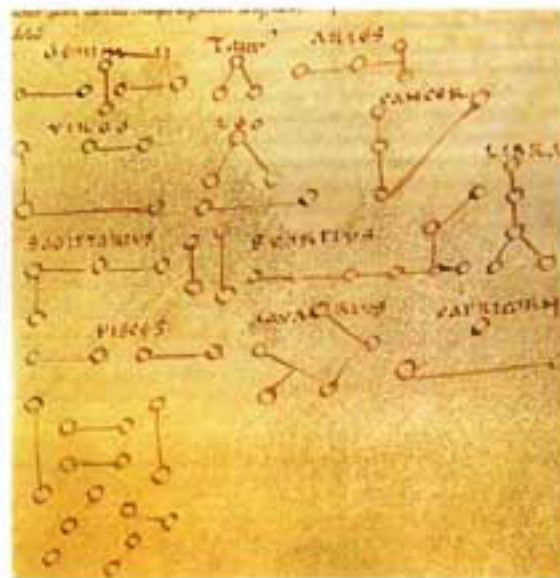 GEMINI
TAUR
ARIES
CANCER
VIRGO
LEO
LIBRA
SAGITTARIUS
SCORPIUS
PISCES
AQUARIUS
CAPRICORN